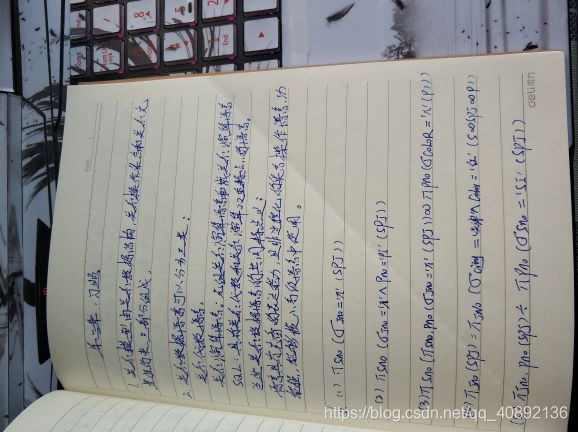 第二章 习题
1. 关系模型由关系数据结构、关系操作集合和关系完
整性约束三部分组成。
2. 关系数据语言可以分为三类：
关系代数语言。
关系演算语言：元组关系演算语言和域关系演算语言
SQL：具有关系代数和关系演算双重特点的语言。
这些关系数据语言的共同特点是：
语言具有完备的表达能力，是非过程化的集合操作语言，功
能强，能够嵌入高级语言中使用。
(1) πSno (σJno='J1' (SPJ))
(2) πSno (σJno='J1' ∧ Pno='P1' (SPJ))
(3) πSno (πSno,Pno (σJno='J1' (SPJ)) ∞ πPno (σColor='红' (P)))
πJno (SPJ) - πJno (σCity='天津' ∧ Color='红' (S∞SPJ∞P))
πJno,Pno (SPJ) ÷ πPno (σSno='S1' (SPJ))
deli得力
https://blog.csdn.net/qq_40892136